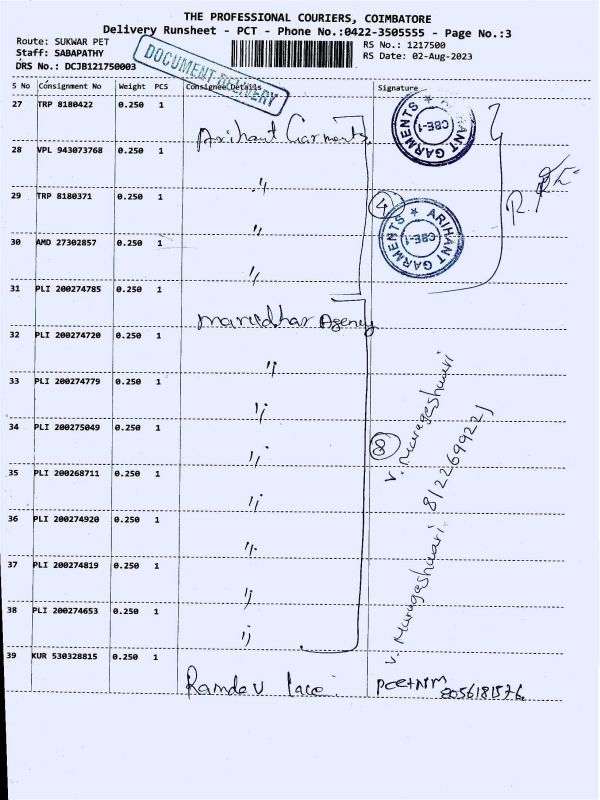 THE PROFESSIONAL COURIERS, COIMBATORE
Delivery Runsheet - PCT - Phone No.:0422-3505555 - Page No.:3
Route: SUKWAR PET
Staff: SABAPATHY
DRS No.: DCJB121750003
RS No.: 1217500
RS Date: 02-Aug-2023
DOCUMENT DELIVERY
S No Consignment No Weight PCS Consignee Details Signature
27 TRP 8180422 0.250 1
Arihant Garments
ARIHANT GARMENTS ★ CBE-1
28 VPL 943073768 0.250 1
〃
29 TRP 8180371 0.250 1
〃
4
ARIHANT GARMENTS ★ CBE-1
30 AMD 27302857 0.250 1
〃
31 PLI 200274785 0.250 1
Marudhar Agency
32 PLI 200274720 0.250 1
〃
33 PLI 200274779 0.250 1
〃
34 PLI 200275049 0.250 1
〃
8
V. Murugeshwari
35 PLI 200268711 0.250 1
〃
36 PLI 200274920 0.250 1
〃
37 PLI 200274819 0.250 1
〃
38 PLI 200274653 0.250 1
〃
V. Murugeshwari. 8122699221
39 KUR 530328815 0.250 1
Ramdev lace.
8056181576